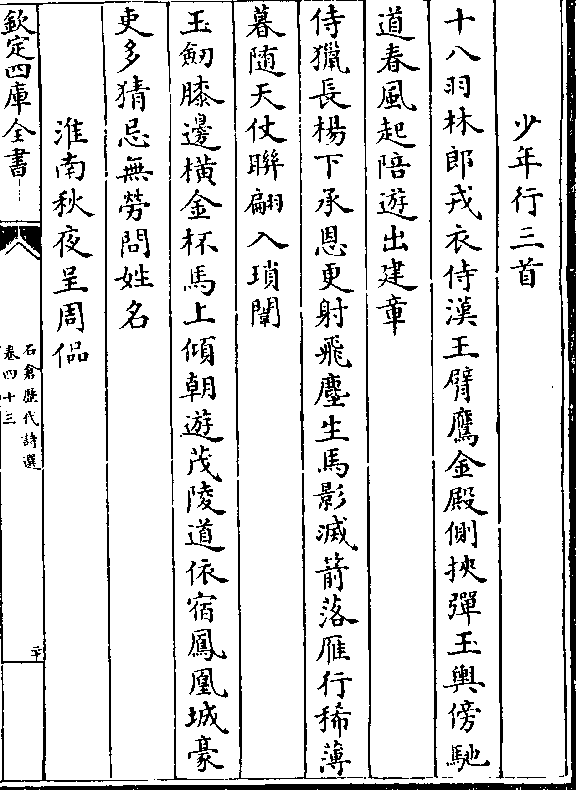 少年行三首
十八羽林郎戎衣侍漢王臂鷹金殿側挾彈玉輿傍馳
道春風起陪遊出建章
侍獵長楊下承恩更射飛塵生馬影滅箭落雁行稀薄
暮随天仗聯翩入瑣闈
玉劒膝邊橫金杯馬上傾朝遊茂陵道依宿鳳凰城豪
吏多猜忌無勞問姓名
淮南秋夜呈周侶
欽定四庫全書
石倉歷代詩選
卷四十三
二十